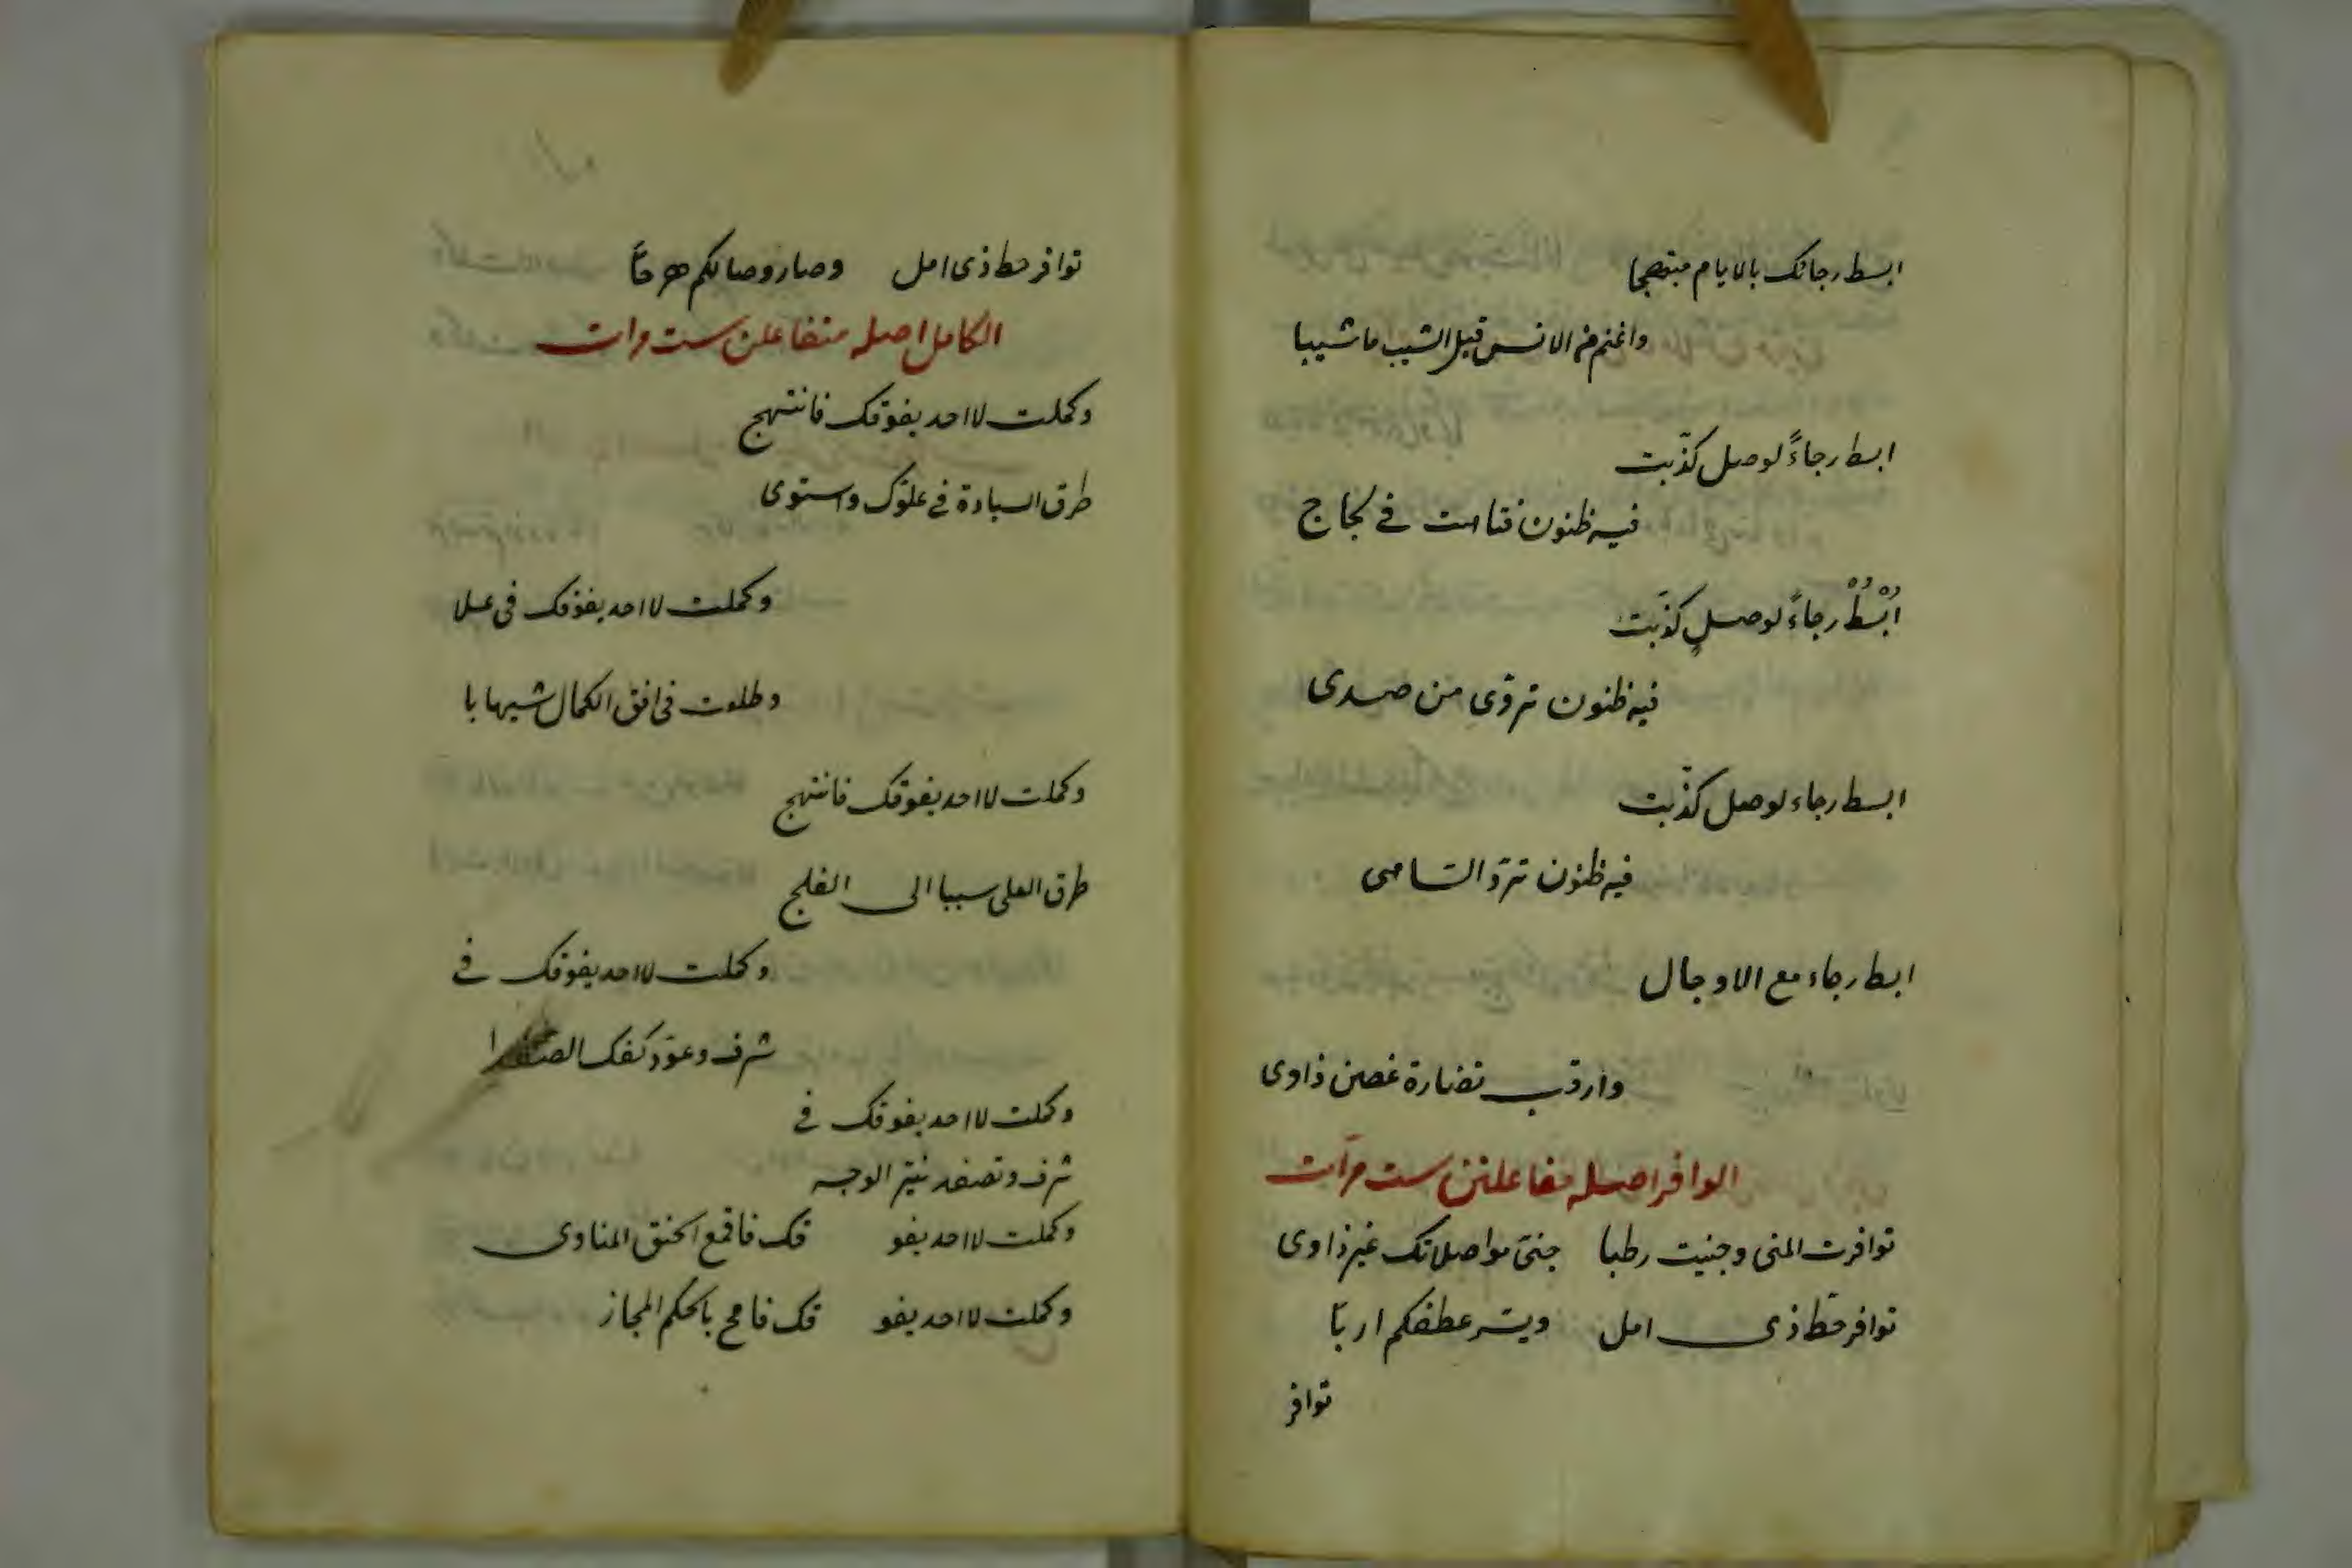 ابسط رجائك بالايام مبتهجا
واغنم من الانس قبل الشيب ما شيبا
ابسط رجاءً لوصل كذّبت
فيه ظنون فتاهت في لجاج
اُبْسُطْ رجاءً لوصلٍ كذّبت
فيه ظنون تروّى من صدى
ابسط رجاء لوصل كذّبت
فيه ظنون تردّ السامى
ابسط رجاء مع الاوجال
وارقب نضارة غصن ذاوى
الوافر اصله مفاعلتن ست مرّات
توافرت المنى وجنيت رطبا جنىّ مواصلاتك غير ذاوى
توافر حظ ذى امل ويسّر عطفكم اربّا
توافر
توافر حظ ذى امل وصار وصالكم هزجاً
الكامل اصله متفاعلن ست مرات
وكملت لا احد يفوقك فانتهج
طرق السيادة في علوّك واستوى
وكملت لا احد يفوقك فى علا
وطلعت فى افق الكمال شهابا
وكملت لا احد يفوقك فانتهج
طرق العلى سببا الى الفلج
وكملت لا احد يفوقك في
شرف وعوّد كفك
وكملت لا احد يفوقك في
شرف وتصفد نيّر الوجه
وكملت لا احد يفو قك فاقمع الحنق المناوى
وكملت لا احد يفو قك بالحكم المجاز